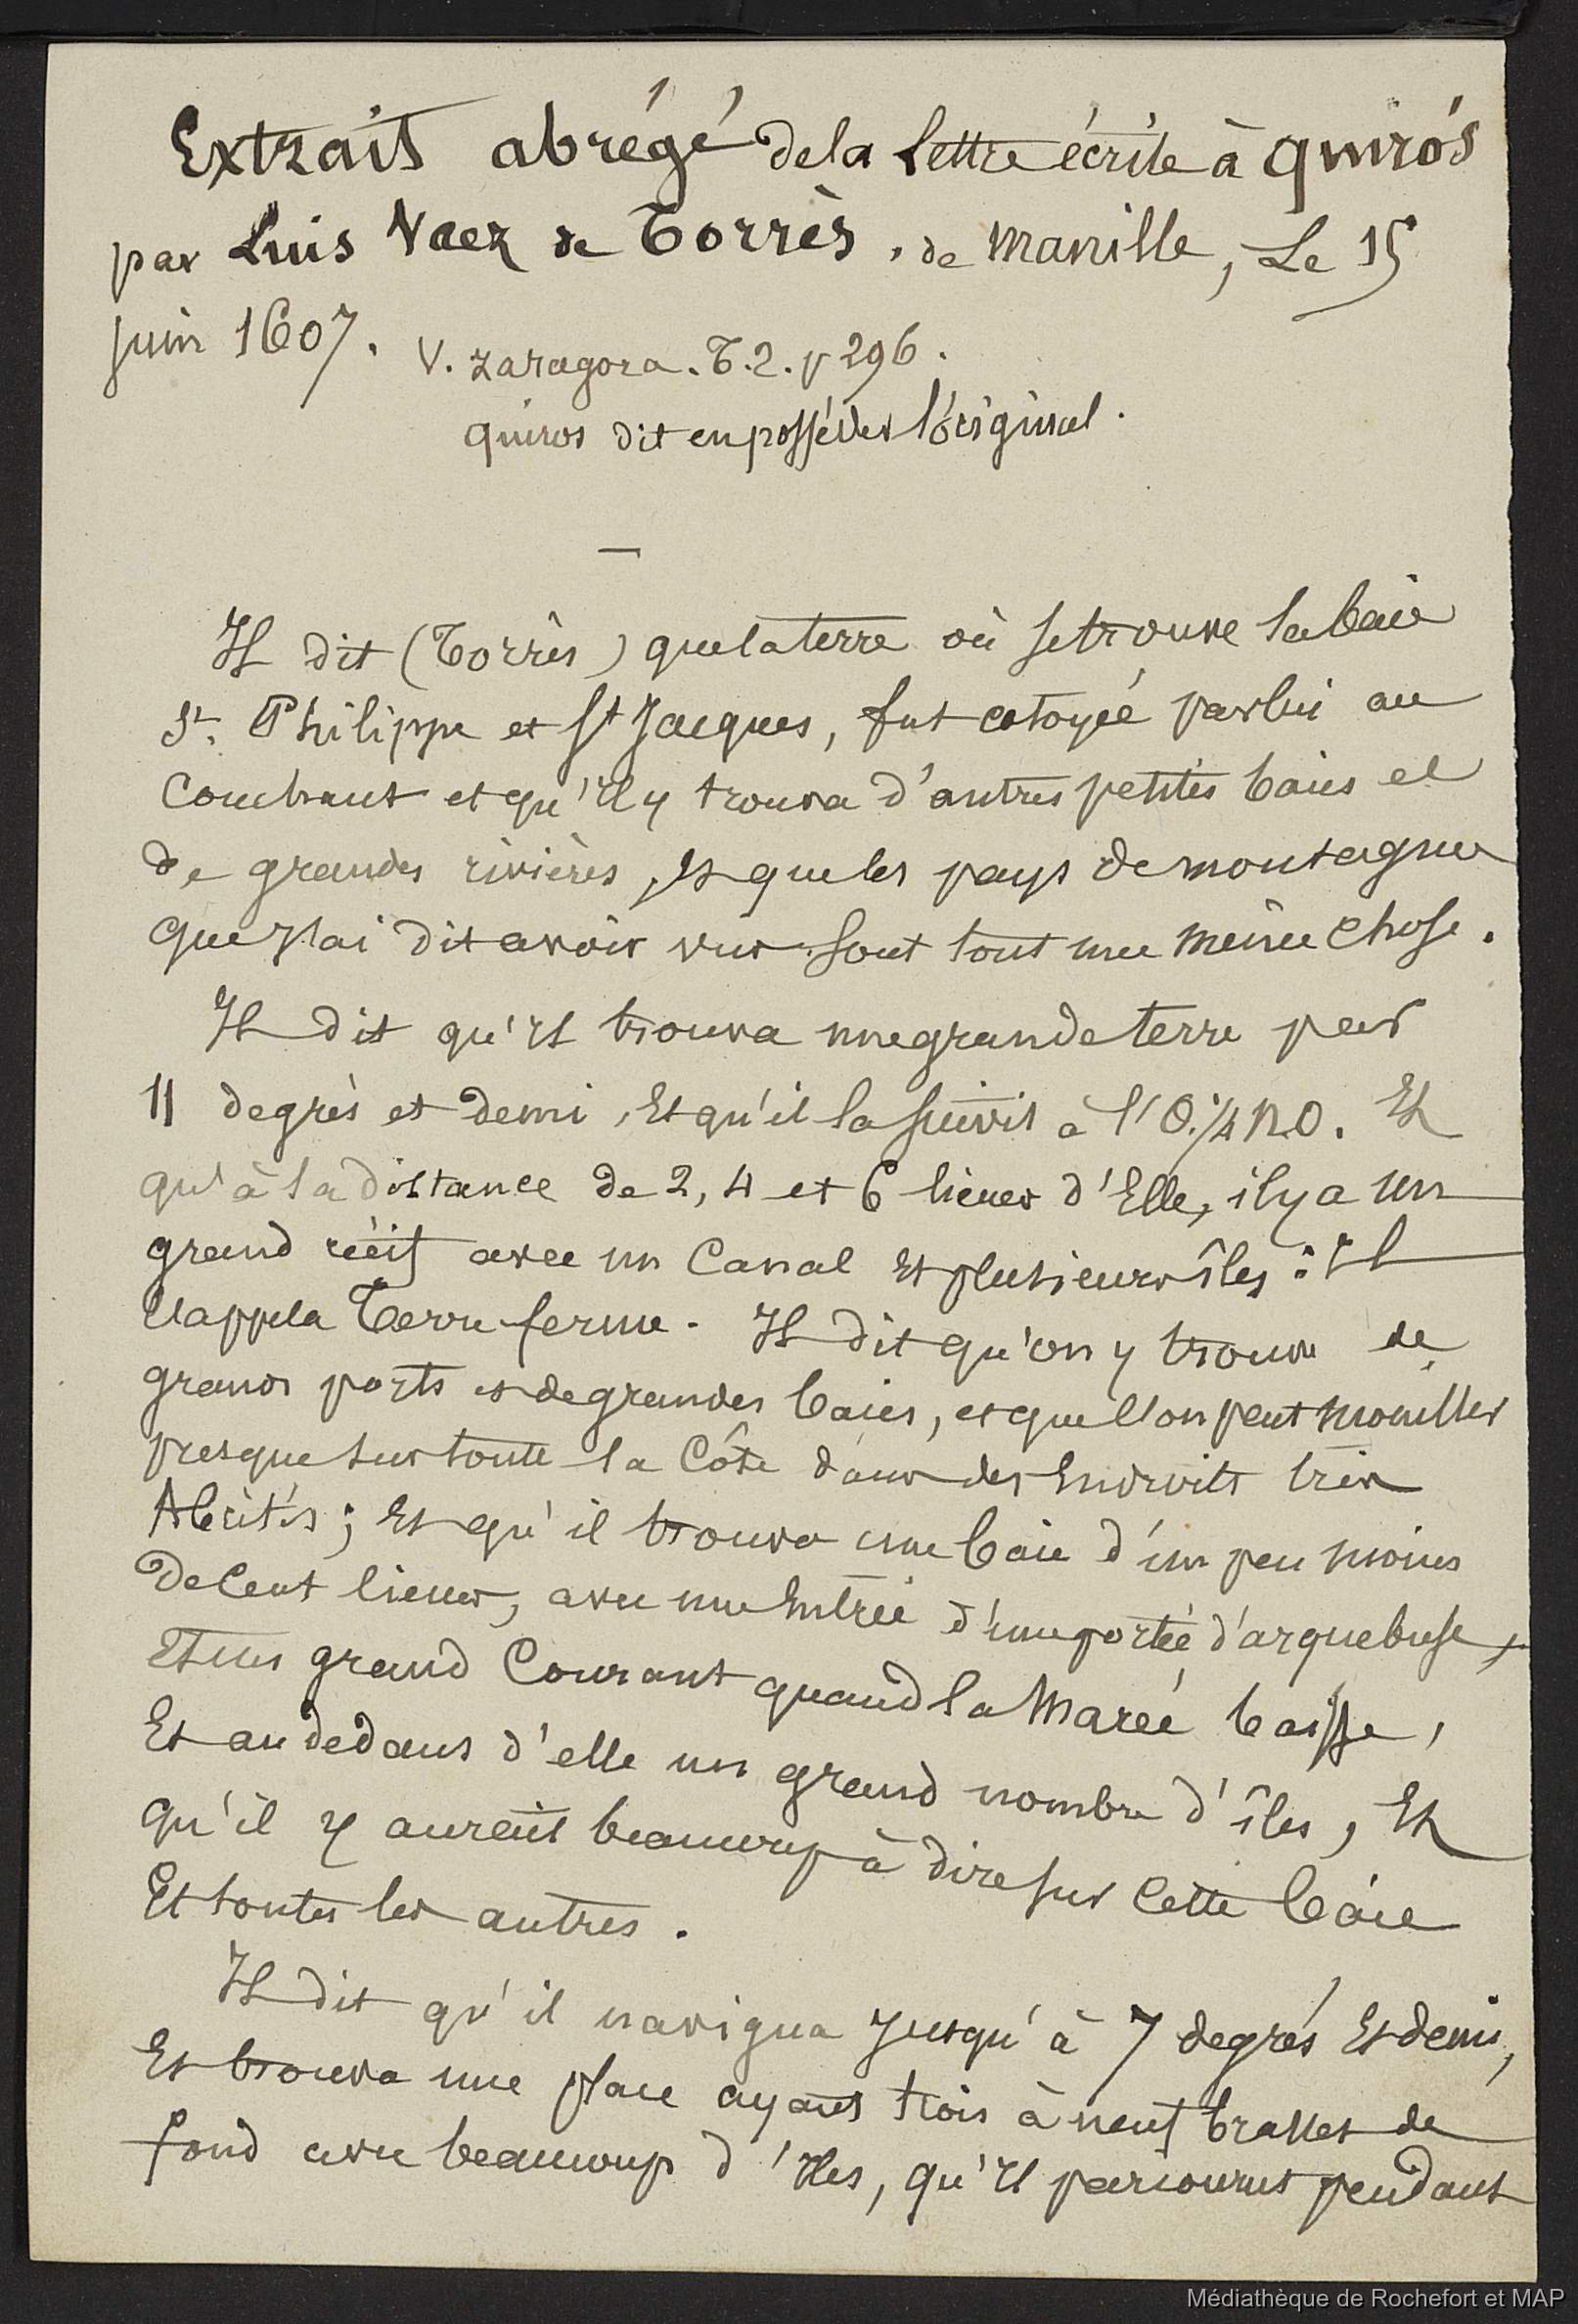 Extrait abrégé de la Lettre écrite à Quirós
par Luis Vaez de Torrès, de Manille, Le 15
juin 1607. V. Zaragoza. T.2. p 296.
Quiros dit en posséder l'original.
—
Il dit (Torrès) que la terre où se trouve la baie
St. Philippe et St Jacques, fut cotoyée par lui au
Couchant et qu'il y trouva d'autres petites baies et
de grandes rivières, Et que les pays de montagnes
que j'ai dit avoir vus sont tout une même chose.
Il dit qu'il trouva une grande terre par
11 degrés et demi, Et qu'il la suivit à l'O.1/4 N.O. Et
qu'à la distance de 2, 4 et 6 lieues d'Elle, il y a un
grand récif avec un Canal et plusieurs îles : Il
l'appela Terre-ferme. Il dit qu'on y trouve de
grands ports et de grandes baies, et que l'on peut mouiller
presque sur toute la Côte dans des Endroits très
Abrités ; Et qu'il trouva une baie d'un peu moins
de Cent lieues, avec une Entrée d'une portée d'arquebuse,
Et un grand Courant quand la Marée baisse,
Et au dedans d'elle un grand nombre d'îles, Et
qu'il y aurait beaucoup à dire sur Cette baie
Et toutes les autres.
Il dit qu'il navigua jusqu'à 7 degrés Et demi,
Et trouva une place ayant trois à neuf brasses de
fond avec beaucoup d'Iles, qu'il parcourut pendant
Médiathèque de Rochefort et MAP